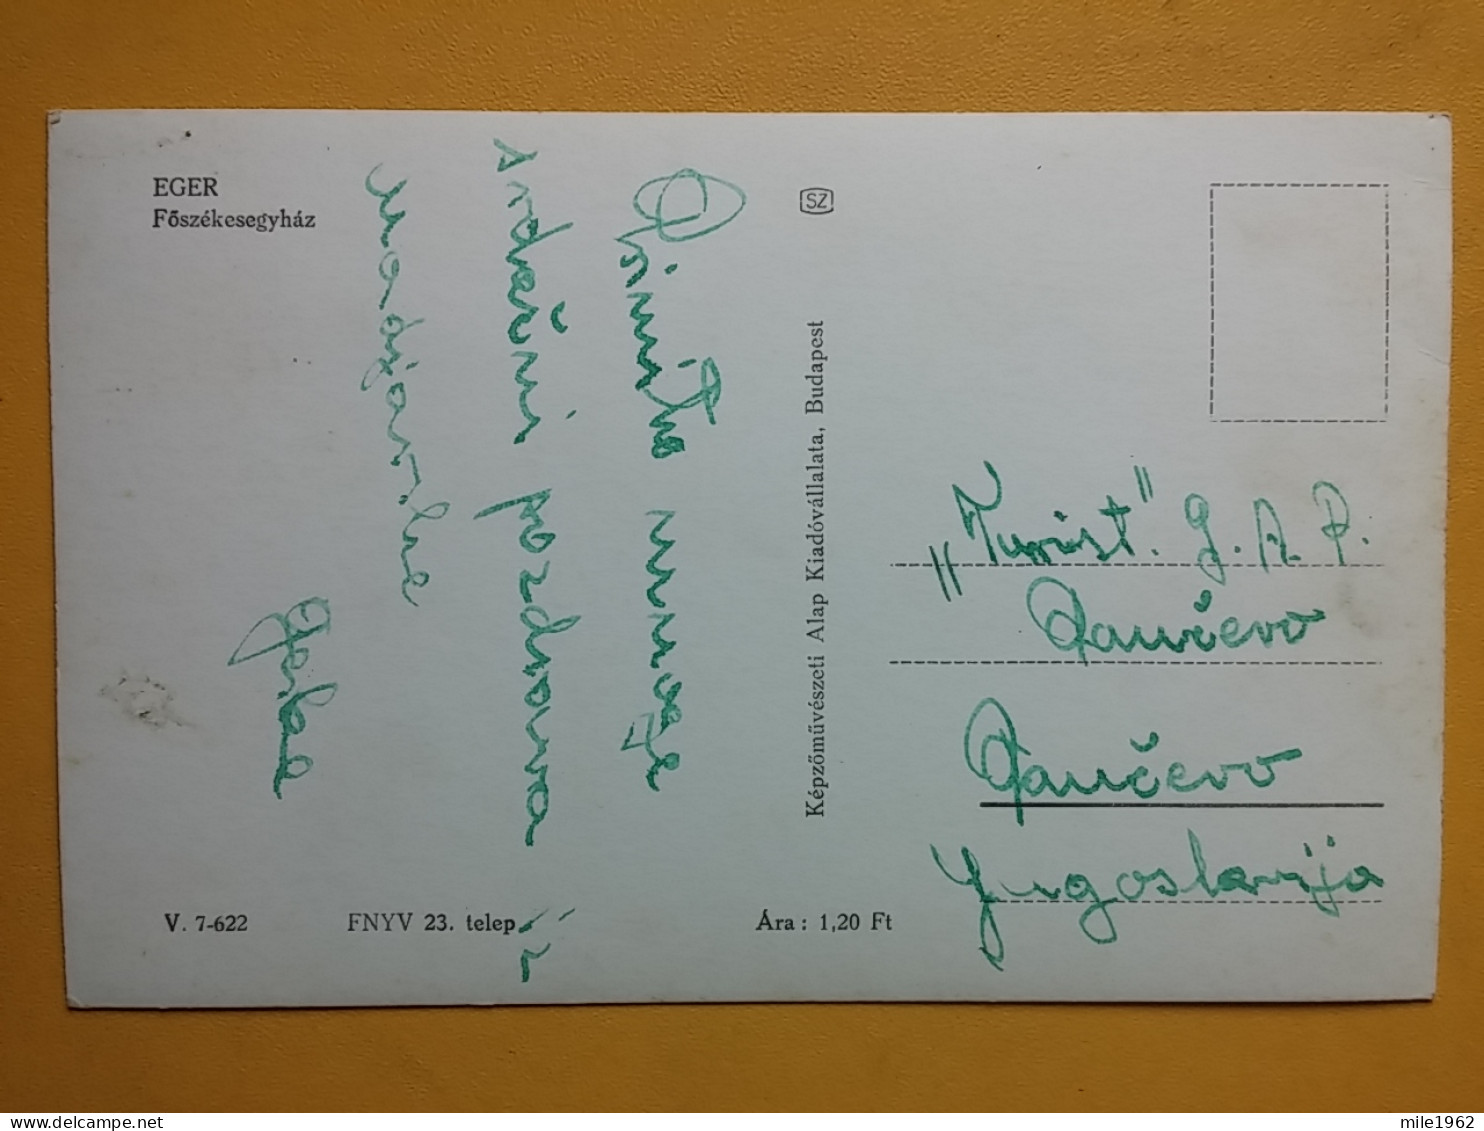 EGER
Főszékesegyház
Primite mnoge
srdačne pozdrave iz
Madjarske
SZ
Képzőművészeti Alap Kiadóvállalata, Budapest
„Turist". G. A. P.
Pančevo
Pančevo
Jugoslavija
V. 7-622
FNYV 23. telep.
Ára: 1,20 Ft
mile1962